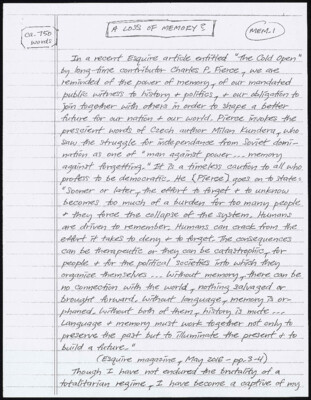 ca. 750 words
A LOSS OF MEMORY?
MEM. 1
In a recent Esquire article entitled "The Cold Open"
by long-time contributor Charles P. Pierce, we are
reminded of the power of memory, of our mandated
public witness to history & politics, & our obligation to
join together with others in order to shape a better
future for our nation & our world. Pierce invokes the
prescient words of Czech author Milan Kundera, who
saw the struggle for independence from Soviet domi-
nation as one of "man against power... memory
against forgetting." It is a timeless caution to all who
profess to be democratic. He (Pierce) goes on to state:
"Sooner or later, the effort to forget & to unknow
becomes too much of a burden for too many people
& they force the collapse of the system. Humans
are driven to remember. Humans can crack from the
effort it takes to deny & to forget. The consequences
can be therapeutic or they can be catastrophic, for
people & for the political societies into which they
organize themselves... Without memory, there can be
no connection with the world, nothing salvaged or
brought forward. Without language, memory is or-
phaned. Without both of them, history is mute...
Language & memory must work together not only to
preserve the past but to illuminate the present & to
build a future."
(Esquire magazine, May 2018 - pp. 3-4)
Though I have not endured the brutality of a
totalitarian regime, I have become a captive of my